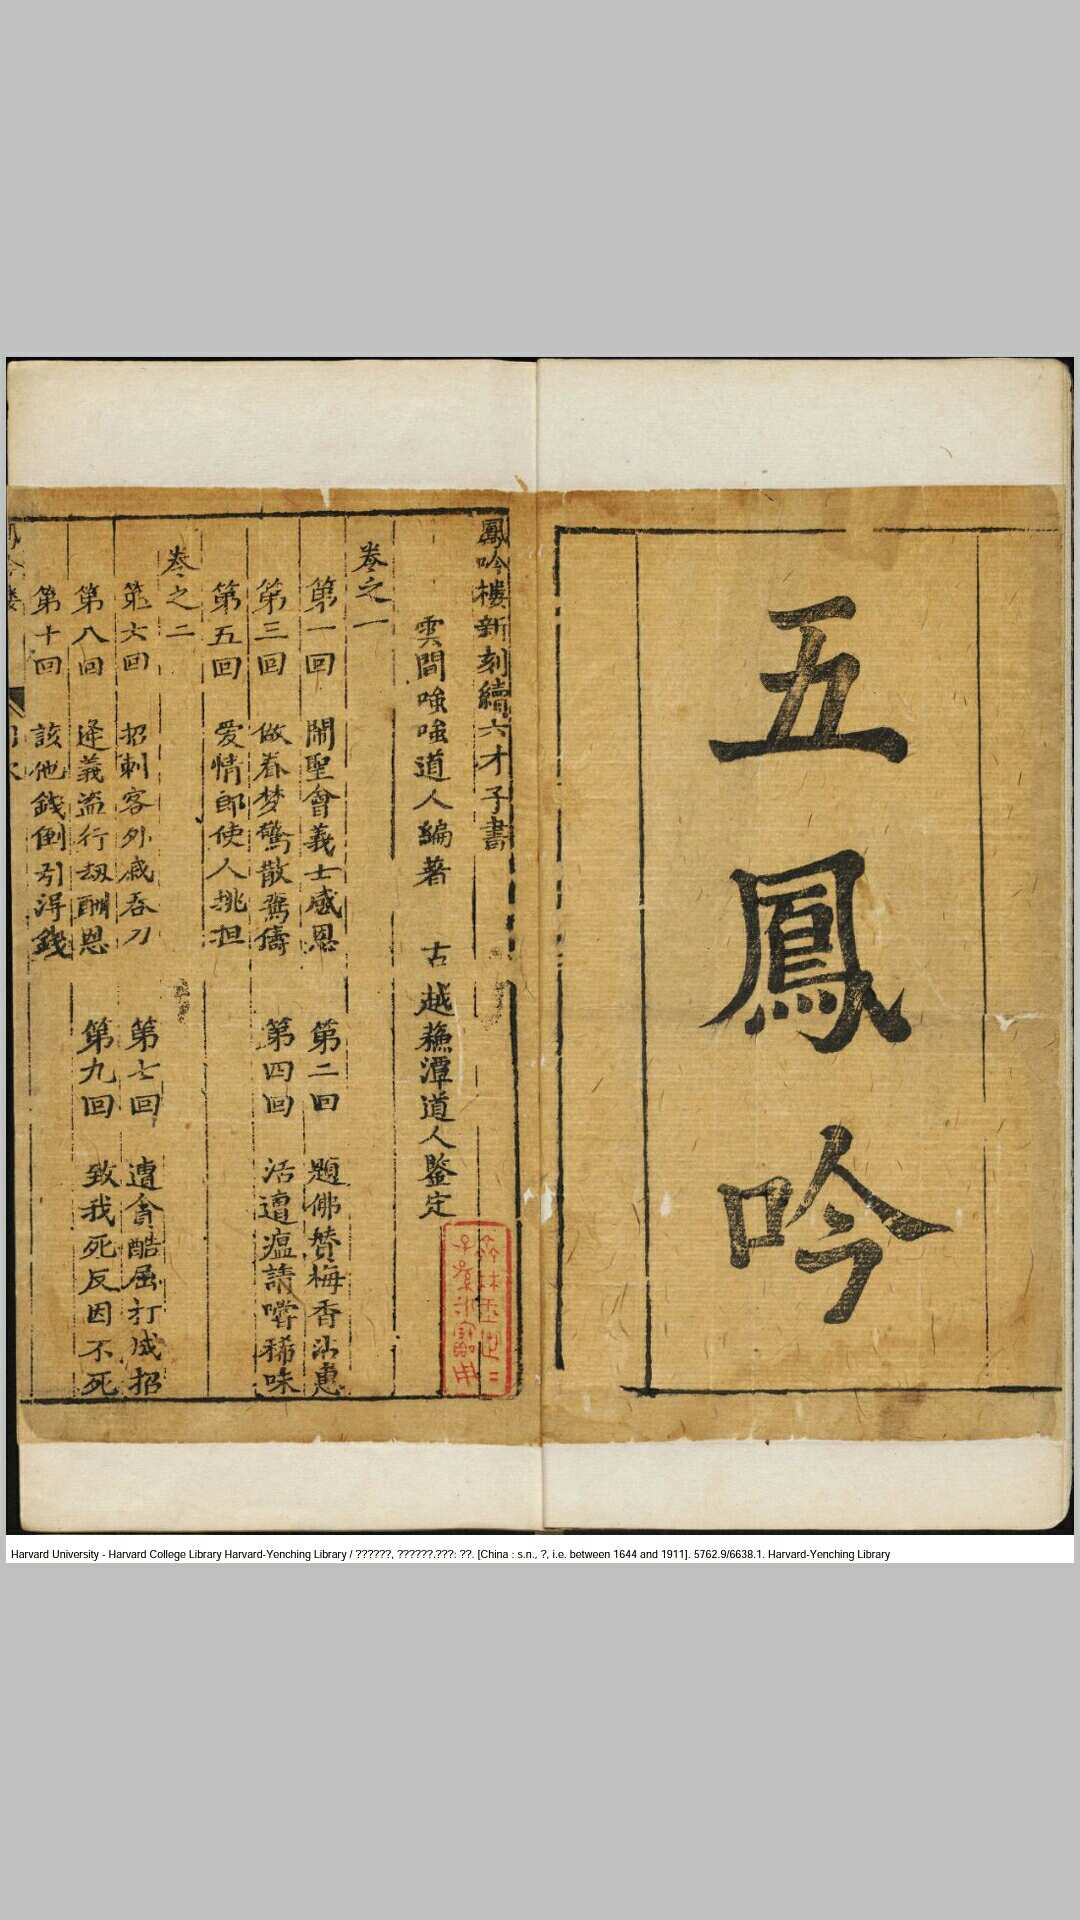 五鳳吟
鳳吟樓新刻續六才子書
雲間嗤嗤道人編著 古越蘓潭道人鑒定
卷之一
第一回 鬧聖會義士感恩 第二回 題佛贊梅香沾惠
第三回 做春梦驚散鴛儔 第四回 活遭瘟請嚐稀味
第五回 爱情郎使人挑担
卷之二
第六回 招刺客外戚吞刀 第七回 遭貪酷屈打成招
第八回 逢義盗行刼酬恩 第九回 致我死反因不死
第十回 該他錢倒引得錢
Harvard University - Harvard College Library Harvard-Yenching Library / ??????, ??????.???: ??. [China : s.n., ?, i.e. between 1644 and 1911]. 5762.9/6638.1. Harvard-Yenching Library